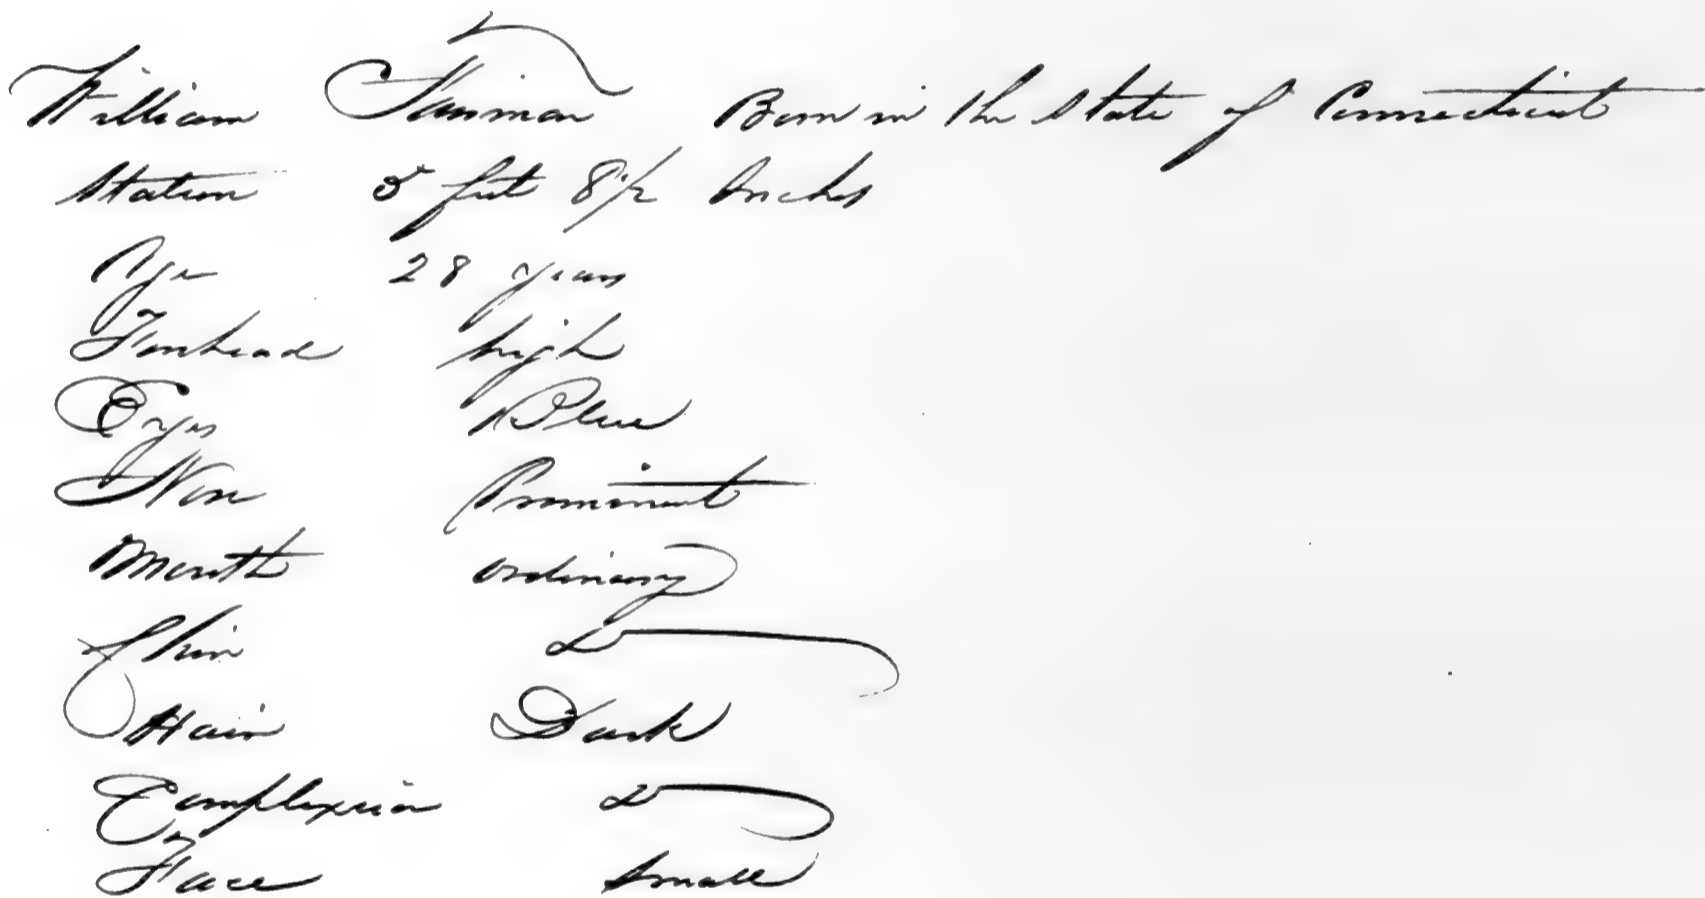 William Born in the State of Connecticut
Station 5 feet 8 1/2 Inches
Age 28 years
Forehead high
Eyes Blue
Nose Prominent
Mouth ordinary
Chin Do
Hair Dark
Complexion Do
Face Small